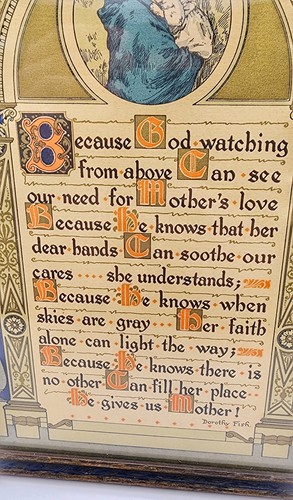 Because God watching
from above Can see
our need for Mother's love
Because He knows that her
dear hands Can soothe our
cares .... she understands;
Because He knows when
skies are gray .... Her faith
alone can light the way;
Because He knows there is
no other Can fill her place
He gives us Mother!
Dorothy Fish